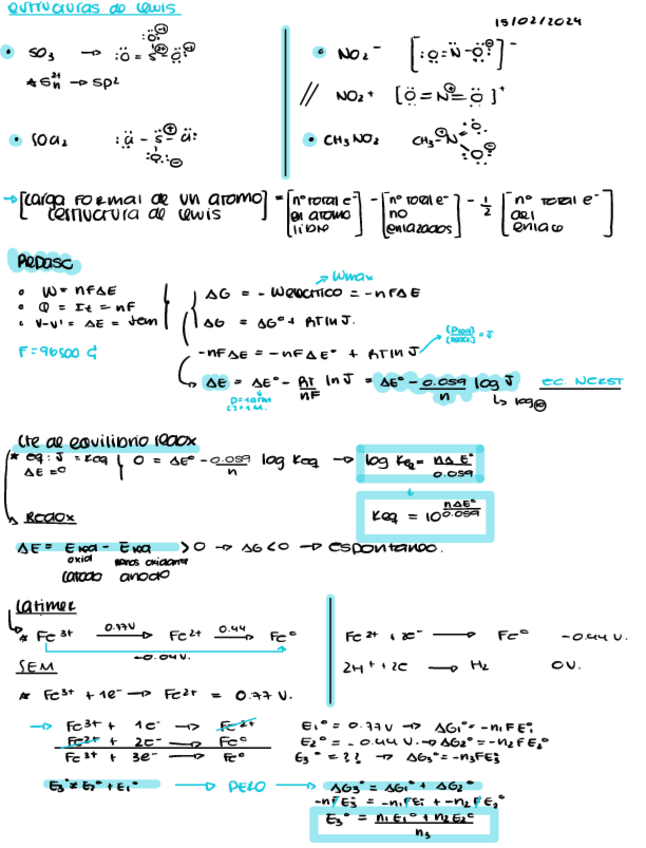 estructuras de lewis
15/02/2024
• SO₃ → :Ö = S²⁺ – Ö:
* S → sp²
• SOCl₂ :Cl – S⊕ – Cl:
:O:⊖
• NO₂⁻ [:O=N–O:⊖]⁻
// NO₂⁺ [O=N⊕=O]⁺
• CH₃NO₂ CH₃–N⊕ O: :O:⊖
→ [carga formal de un atomo estructura de lewis] = [nº total e⁻ en atomo libre] – [nº total e⁻ no enlazados] – 1/2 [nº total e⁻ del enlace]
Repaso
• W = nFΔE
• Q = It = nF
• V-V' = ΔE = fem
F = 96500 C
→ Wmax
ΔG = - Welectrico = -nFΔE
ΔG = ΔG° + RT ln J.
-nFΔE = -nFΔE° + RT ln J
ΔE = ΔE° - RT/nF ln J = ΔE° - 0.059/n log J ec. NERST
P=1atm
C=1M.
↳ log⑩
Cte de equilibrio redox
* eq: J = Keq
ΔE = 0
0 = ΔE° - 0.059/n log Keq → log Keq = nΔE°/0.059
Keq = 10^(nΔE°/0.059)
Redox
ΔE = Ered - Ered > 0 → ΔG<0 → espontaneo.
oxid menos oxidante
catodo anodo
Latimer
* Fe³⁺ 0.77V → Fe²⁺ 0.44 → Fe°
-0.04V.
Fe²⁺ + 2e⁻ → Fe° -0.44V.
2H⁺ + 2e → H₂ 0V.
SEM
* Fe³⁺ + 1e⁻ → Fe²⁺ = 0.77 V.
→ Fe³⁺ + 1e⁻ → Fe²⁺ E₁° = 0.77V → ΔG₁° = -n₁FE₁°
Fe²⁺ + 2e⁻ → Fe° E₂° = -0.44 V. → ΔG₂° = -n₂FE₂°
Fe³⁺ + 3e⁻ → Fe° E₃° = ?? → ΔG₃° = -n₃FE₃°
E₃° ≠ E₂° + E₁° → PERO → ΔG₃° = ΔG₁° + ΔG₂°
-nFE₃° = -n₁FE₁° + -n₂FE₂°
E₃° = n₁E₁° + n₂E₂° / n₃